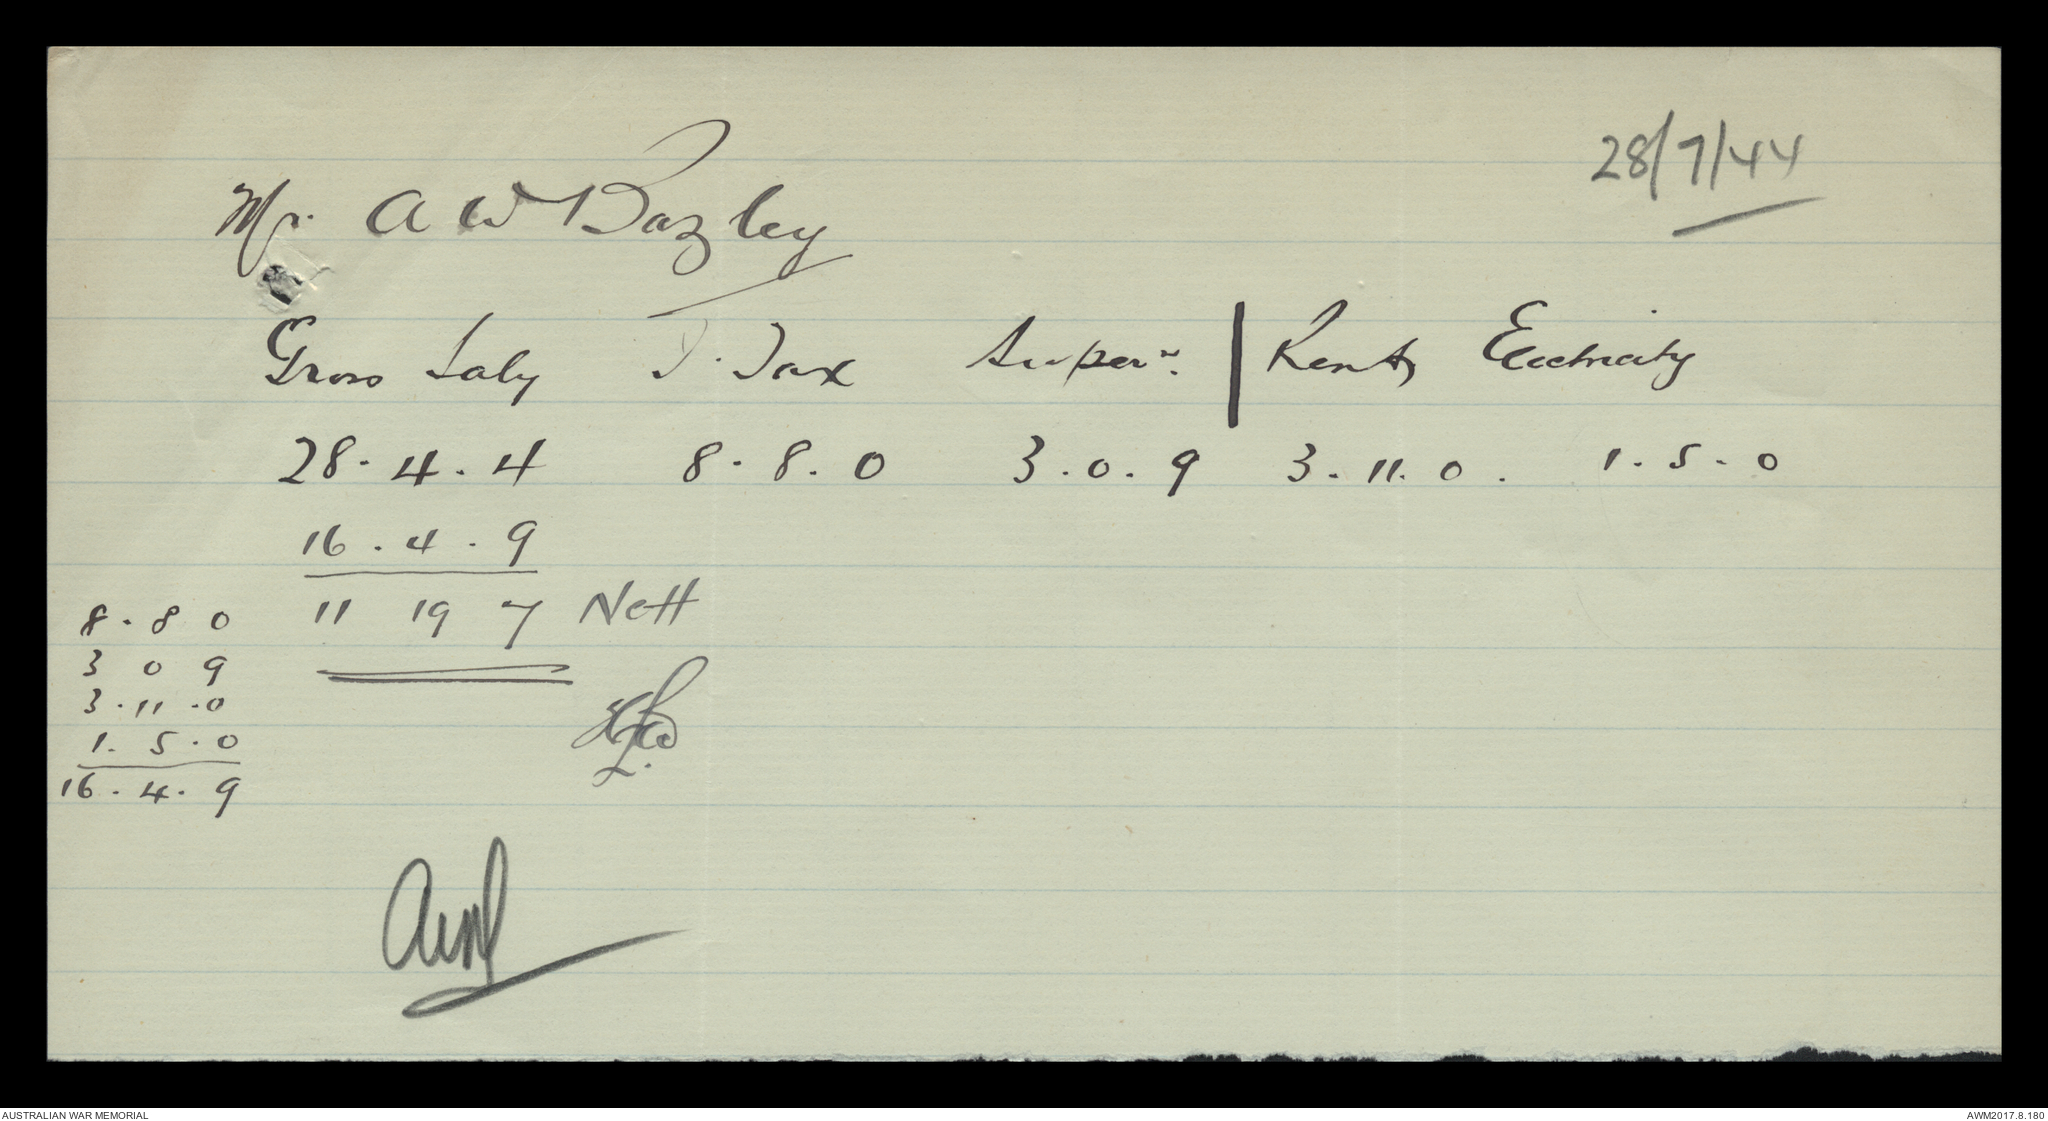 28/7/44
Mr. A W Bazley
Gross Saly I. Tax Super<sup>n</sup>. Rent Electricity
28. 4. 4 8. 8. 0 3. 0. 9 3. 11. 0. 1. 5. 0
16. 4. 9
11 19 7 Nett
8. 8 0
3 0 9
3. 11. 0
1. 5. 0
16. 4. 9
AUSTRALIAN WAR MEMORIAL
AWM2017.8.180